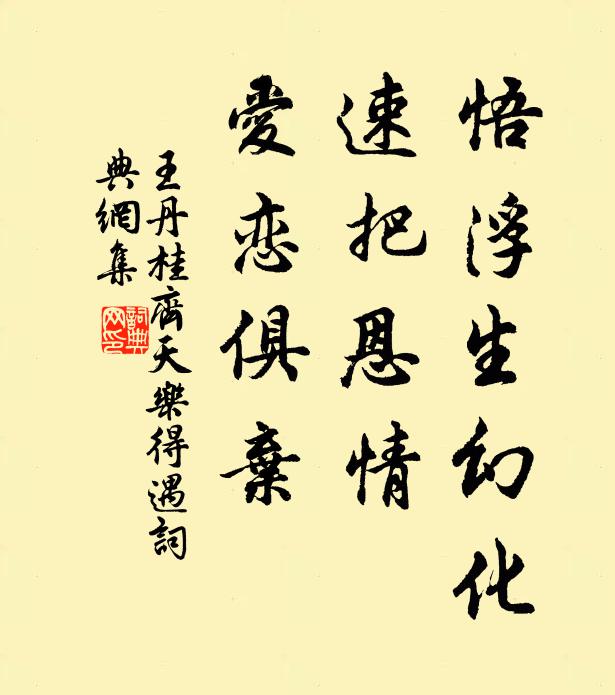 悟浮生幻化
速把恩情
愛恋俱棄
王丹桂齊天樂得遇詞
典網集
詞典
网印